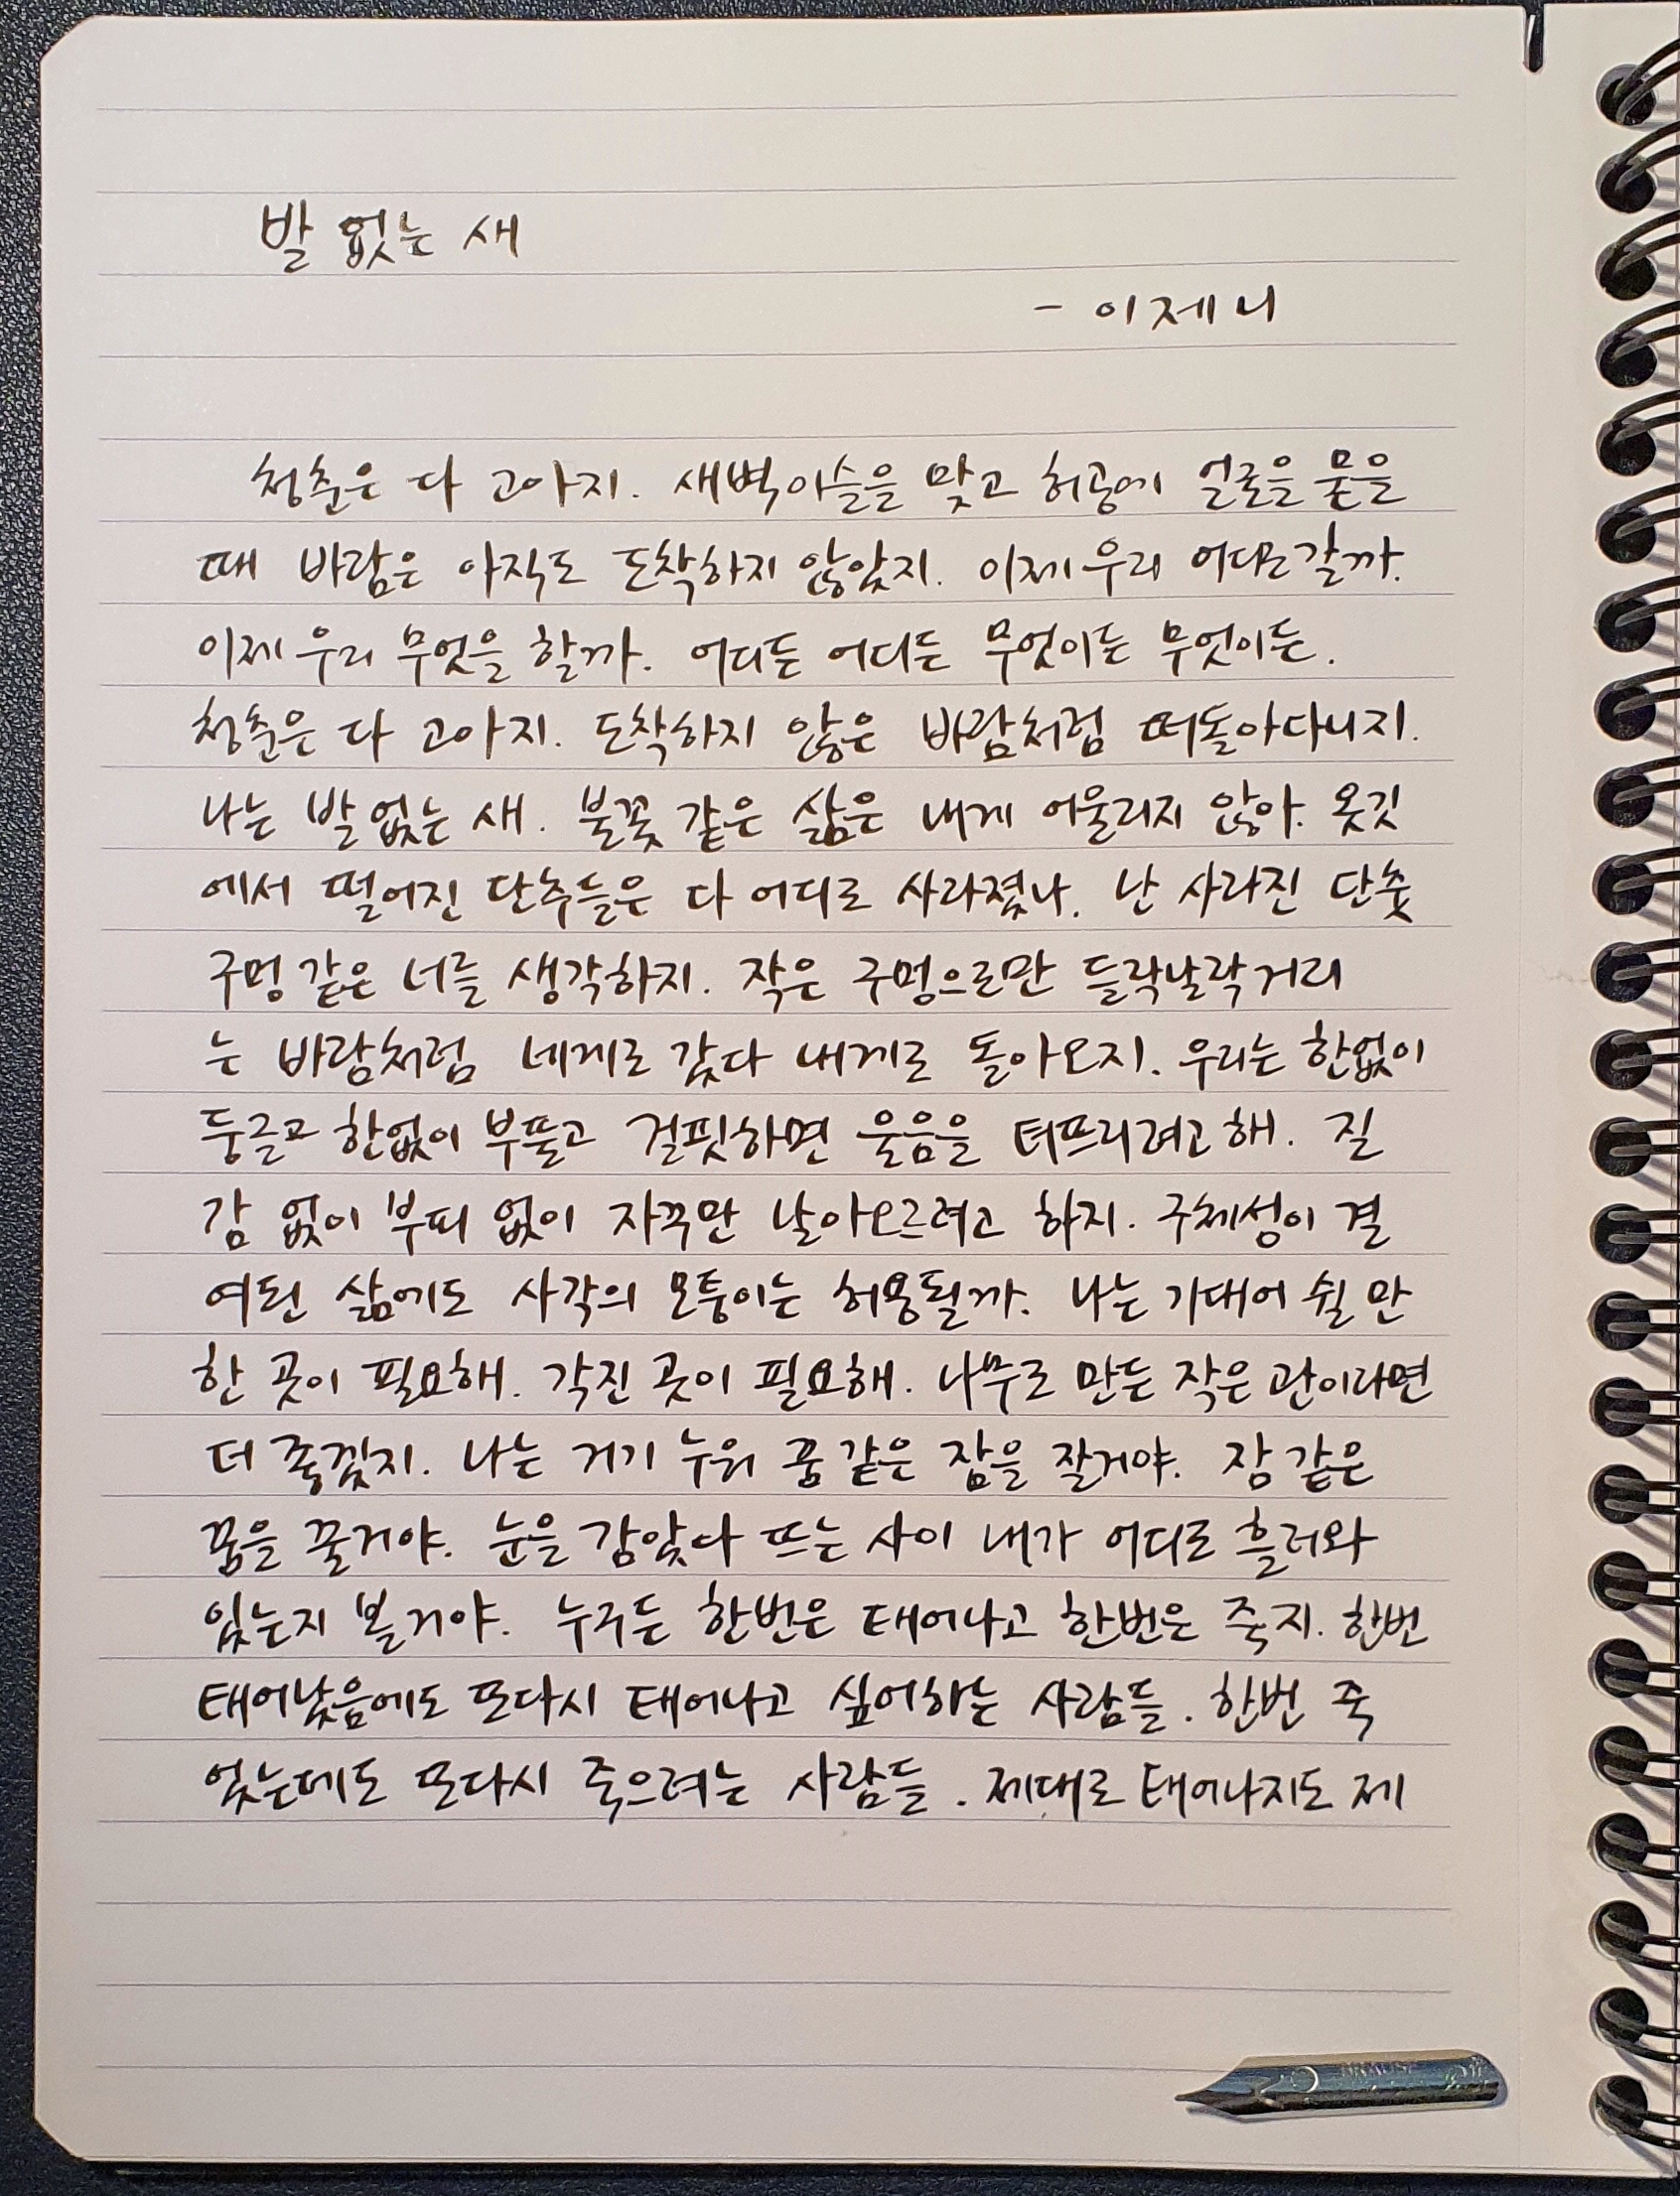 발 없는 새
- 이제니
청춘은 다 고아지. 새벽이슬을 맞고 허공에 얼굴을 묻을
때 바람은 아직도 도착하지 않았지. 이제 우리 어디로 갈까.
이제 우리 무엇을 할까. 어디든 어디든 무엇이든 무엇이든.
청춘은 다 고아지. 도착하지 않은 바람처럼 떠돌아다니지.
나는 발 없는 새. 불꽃 같은 삶은 내게 어울리지 않아. 옷깃
에서 떨어진 단추들은 다 어디로 사라졌나. 난 사라진 단춧
구멍 같은 너를 생각하지. 작은 구멍으로만 들락날락거리
는 바람처럼 네게로 갔다 내게로 돌아오지. 우리는 한없이
둥글고 한없이 부풀고 걸핏하면 울음을 터뜨리려고 해. 질
감 없이 부피 없이 자꾸만 날아오르려고 하지. 구체성이 결
여된 삶에도 사각의 모퉁이는 허용될까. 나는 기대어 쉴 만
한 곳이 필요해. 각진 곳이 필요해. 나무로 만든 작은 관이라면
더 좋겠지. 나는 거기 누워 꿈 같은 잠을 잘거야. 잠 같은
꿈을 꿀거야. 눈을 감았다 뜨는 사이 내가 어디로 흘러와
있는지 볼거야. 누구든 한번은 태어나고 한번은 죽지. 한번
태어났음에도 또다시 태어나고 싶어하는 사람들. 한번 죽
었는데도 또다시 죽으려는 사람들. 제대로 태어나지도 제